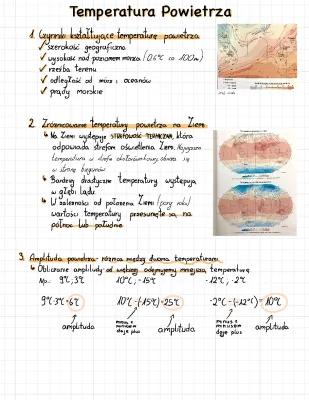 Temperatura Powietrza
1. Czynniki kształtujące temperaturę powietrza
✓ szerokość geograficzna
✓ wysokość nad poziomem morza (0,6°C co 100m)
✓ rzeźba terenu
✓ odległość od mórz i oceanów
✓ prądy morskie
2. Zróżnicowanie temperatury powietrza na Ziemi
↳ Na Ziemi występuje STREFOWOŚĆ TERMICZNA, która
odpowiada strefom oświetlenia Ziemi. Najwyższa
temperatura w strefie okołorównikowej, obniża się
w stronę biegunów
↳ Bardziej drastyczne temperatury występują
w głębi lądu
↳ W zależności od położenia Ziemi (pory roku)
wartości temperatury przesunięte są na
północ lub południe
3. Amplituda powietrza - różnica między dwoma temperaturami
↳ Obliczanie amplitudy: od większej odejmujemy mniejszą temperaturę
Np.: 9°C, 3°C 10°C, -15°C -12°C, -2°C
9°C-3°C=6°C 10°C-(-15°C)=25°C -2°C-(-12°C)=10°C
amplituda minus z minusem daje plus amplituda minus z minusem daje plus amplituda